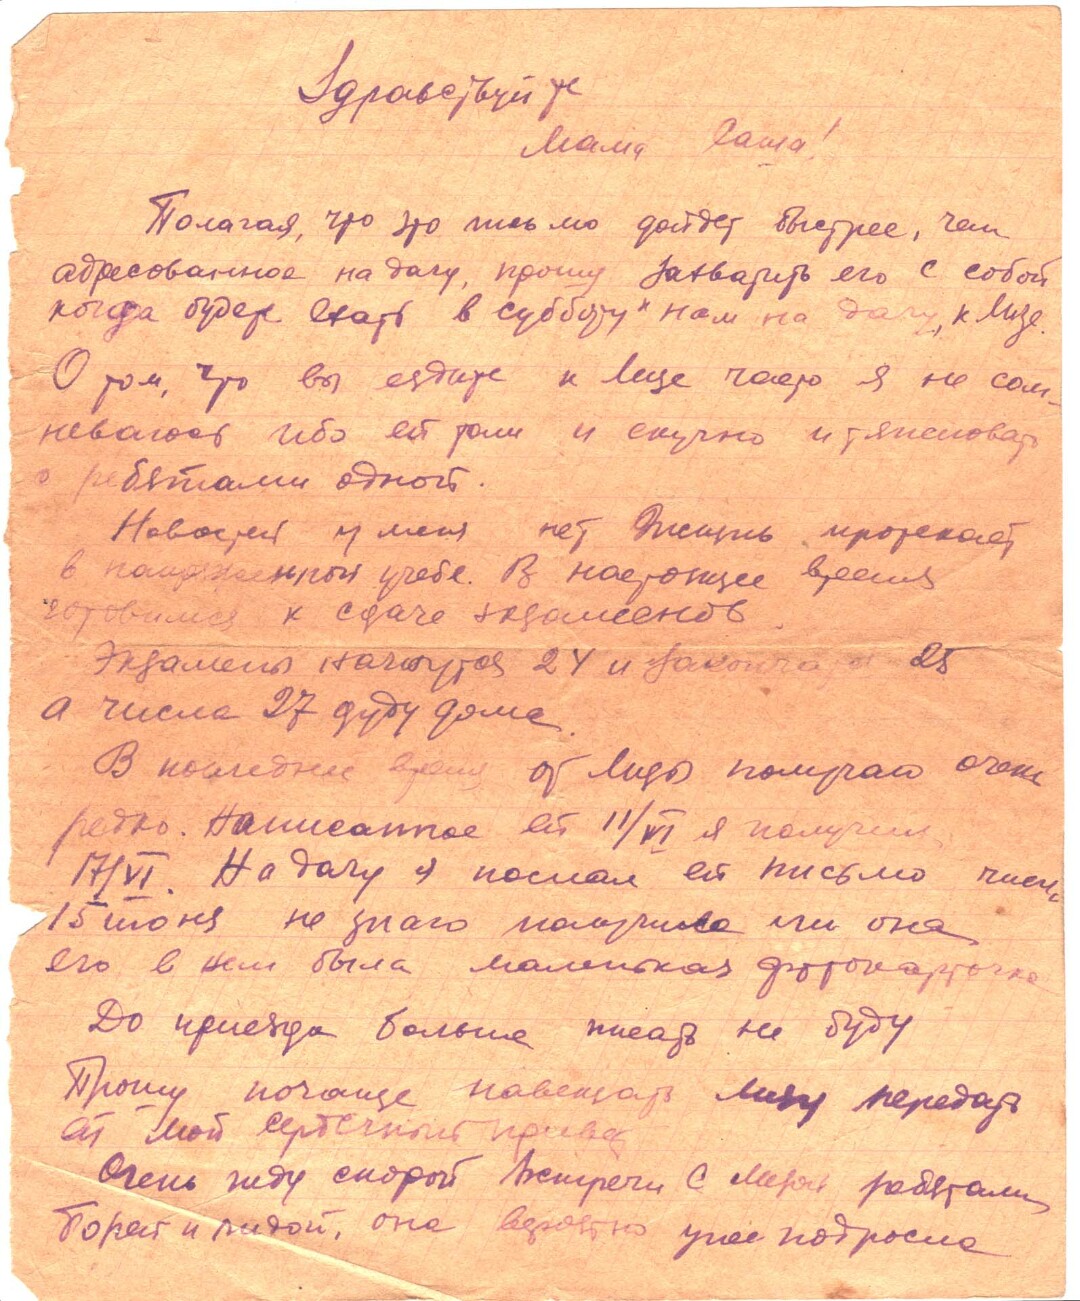 Здравствуйте
Мама Саша!
Полагая, что это письмо дойдет быстрее, чем
адресованное на дачу, прошу захватить его с собой
когда будете ехать в субботу к нам на дачу, к Лизе.
О том, что вы ездите к Лизе часто я не сом-
неваюсь ибо ей там и скучно и тяжеловато
с ребятами одной.
Новостей у меня нет Жизнь протекает
в напряженной учебе. В настоящее время
готовимся к сдаче экзаменов
Экзамены начнутся 24 и 25
а числа 27 буду дома.
В последнее время от Лизы получаю очень
редко. Написанное ей 11/VI я получил
17/VI. На дачу я послал ей письмо числа
15 июня не знаю получила ли она
его в нем была маленькая фотокарточка
До приезда больше писать не буду
Прошу почаще навещать Лизу передать
ей мой сердечный привет
Очень жду скорой встречи с Лизой ребятами
Борей и Лидой, она вероятно уже подросла